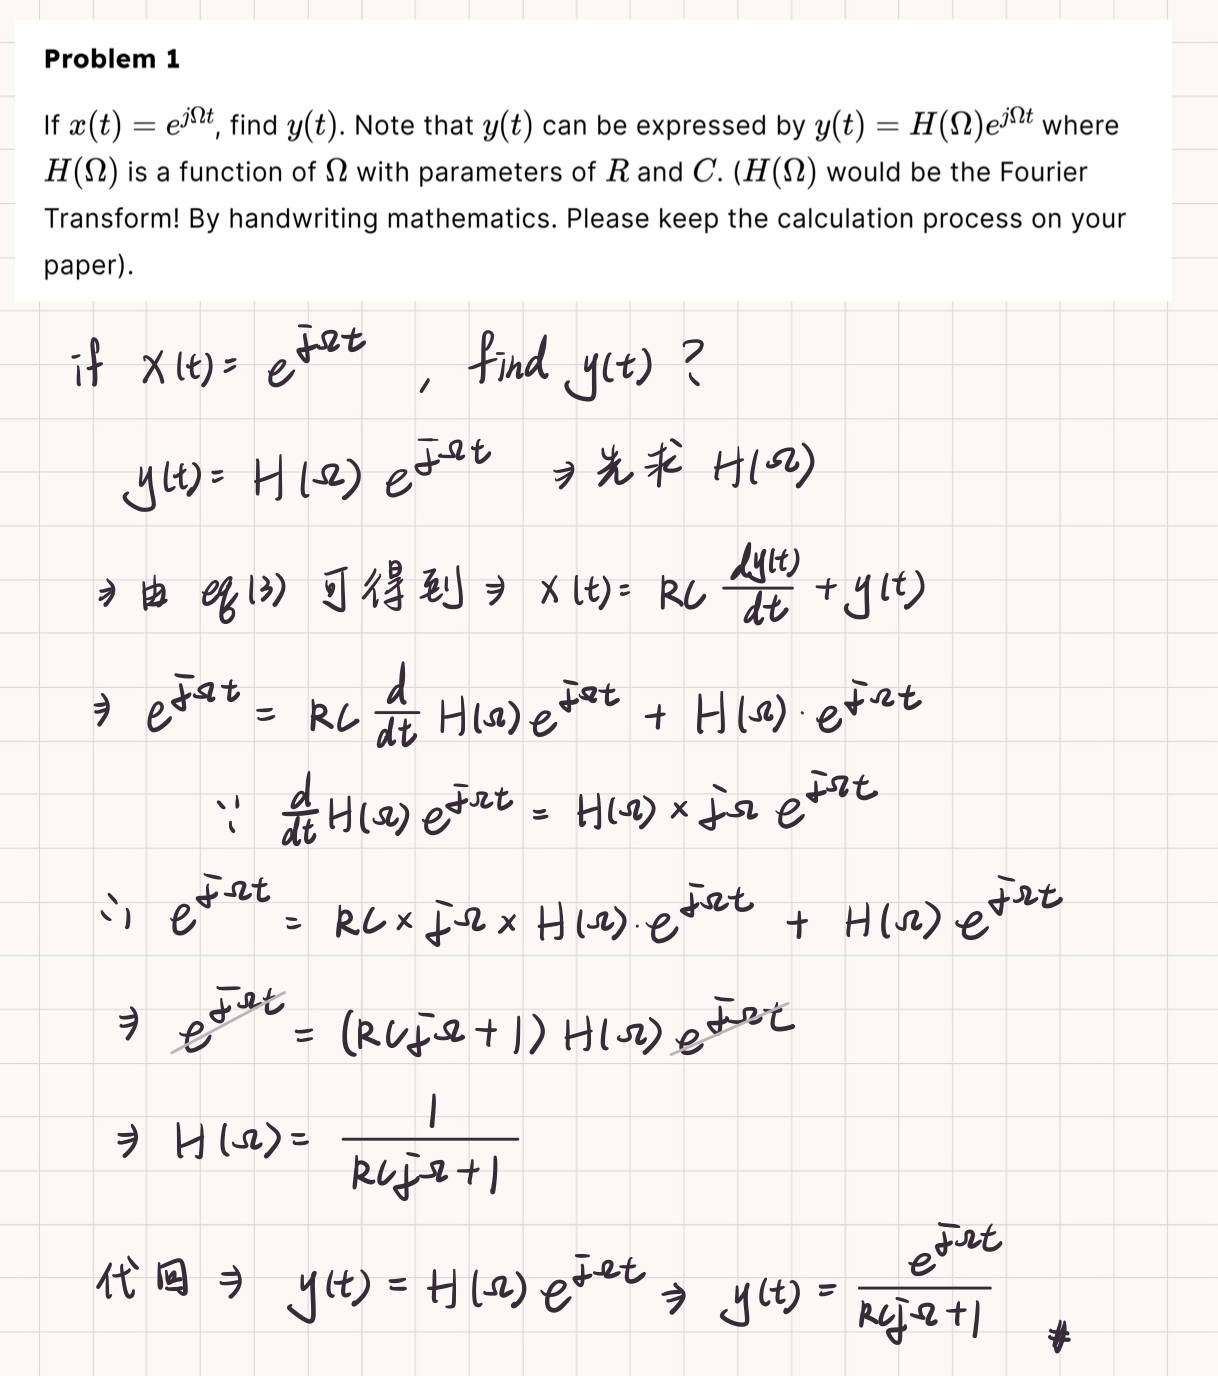 Problem 1
If x(t) = e^{jΩt}, find y(t). Note that y(t) can be expressed by y(t) = H(Ω)e^{jΩt} where
H(Ω) is a function of Ω with parameters of R and C. (H(Ω) would be the Fourier
Transform! By handwriting mathematics. Please keep the calculation process on your
paper).
if x(t) = e^{jΩt} , find y(t) ?
y(t) = H(Ω) e^{jΩt} ⇒ 先求 H(Ω)
⇒ 由 eq(3) 可得到 ⇒ x(t) = RC \frac{dy(t)}{dt} + y(t)
⇒ e^{jΩt} = RC \frac{d}{dt} H(Ω) e^{jΩt} + H(Ω) · e^{jΩt}
∵ \frac{d}{dt} H(Ω) e^{jΩt} = H(Ω) × jΩ e^{jΩt}
∴ e^{jΩt} = RC × jΩ × H(Ω) · e^{jΩt} + H(Ω) e^{jΩt}
⇒ e^{jΩt} = (RCjΩ + 1) H(Ω) e^{jΩt}
⇒ H(Ω) = \frac{1}{RCjΩ + 1}
代回 ⇒ y(t) = H(Ω) e^{jΩt} ⇒ y(t) = \frac{e^{jΩt}}{RCjΩ + 1} #